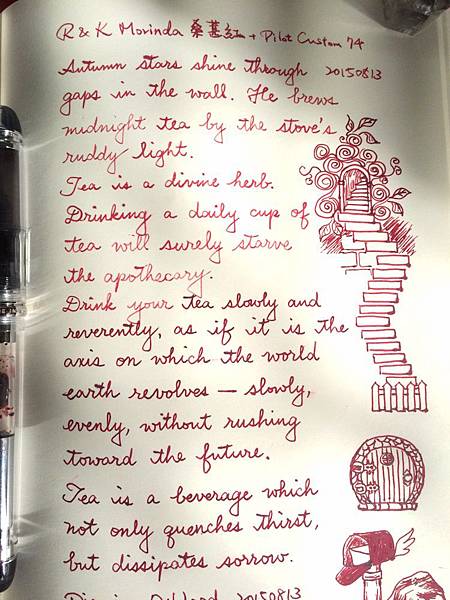 R & K Morinda 桑葚紅 + Pilot Custom 74
Autumn stars shine through 20150813
gaps in the wall. He brews
midnight tea by the stove's
ruddy light.
Tea is a divine herb.
Drinking a daily cup of
tea will surely starve
the apothecary.
Drink your tea slowly and
reverently, as if it is the
axis on which the world
earth revolves — slowly,
evenly, without rushing
toward the future.
Tea is a beverage which
not only quenches thirst,
but dissipates sorrow.
20150813